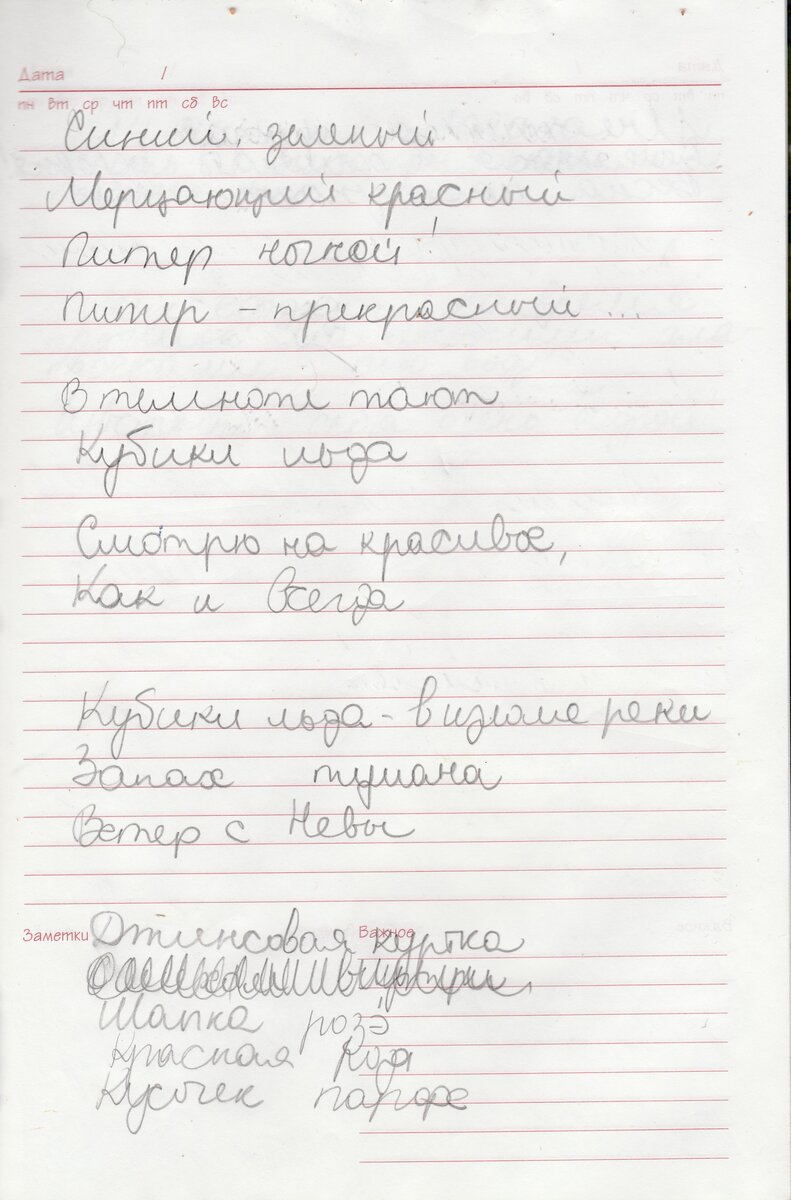 Дата /
пн вт ср чт пт сб вс
Синий, зеленый
Мерцающий красный
Питер ночной!
Питер - прекрасный...
В темноте тают
Кубики льда
Смотрю на красивое,
Как и всегда
Кубики льда - в изломе реки
Запах тумана
Ветер с Невы
Заметки Важное
Джинсовая куртка
Шапка розэ
Красная
Кусочек парфе